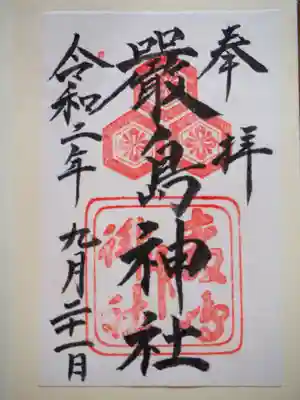 奉拝
嚴島神社
令和二年 九月二十一日